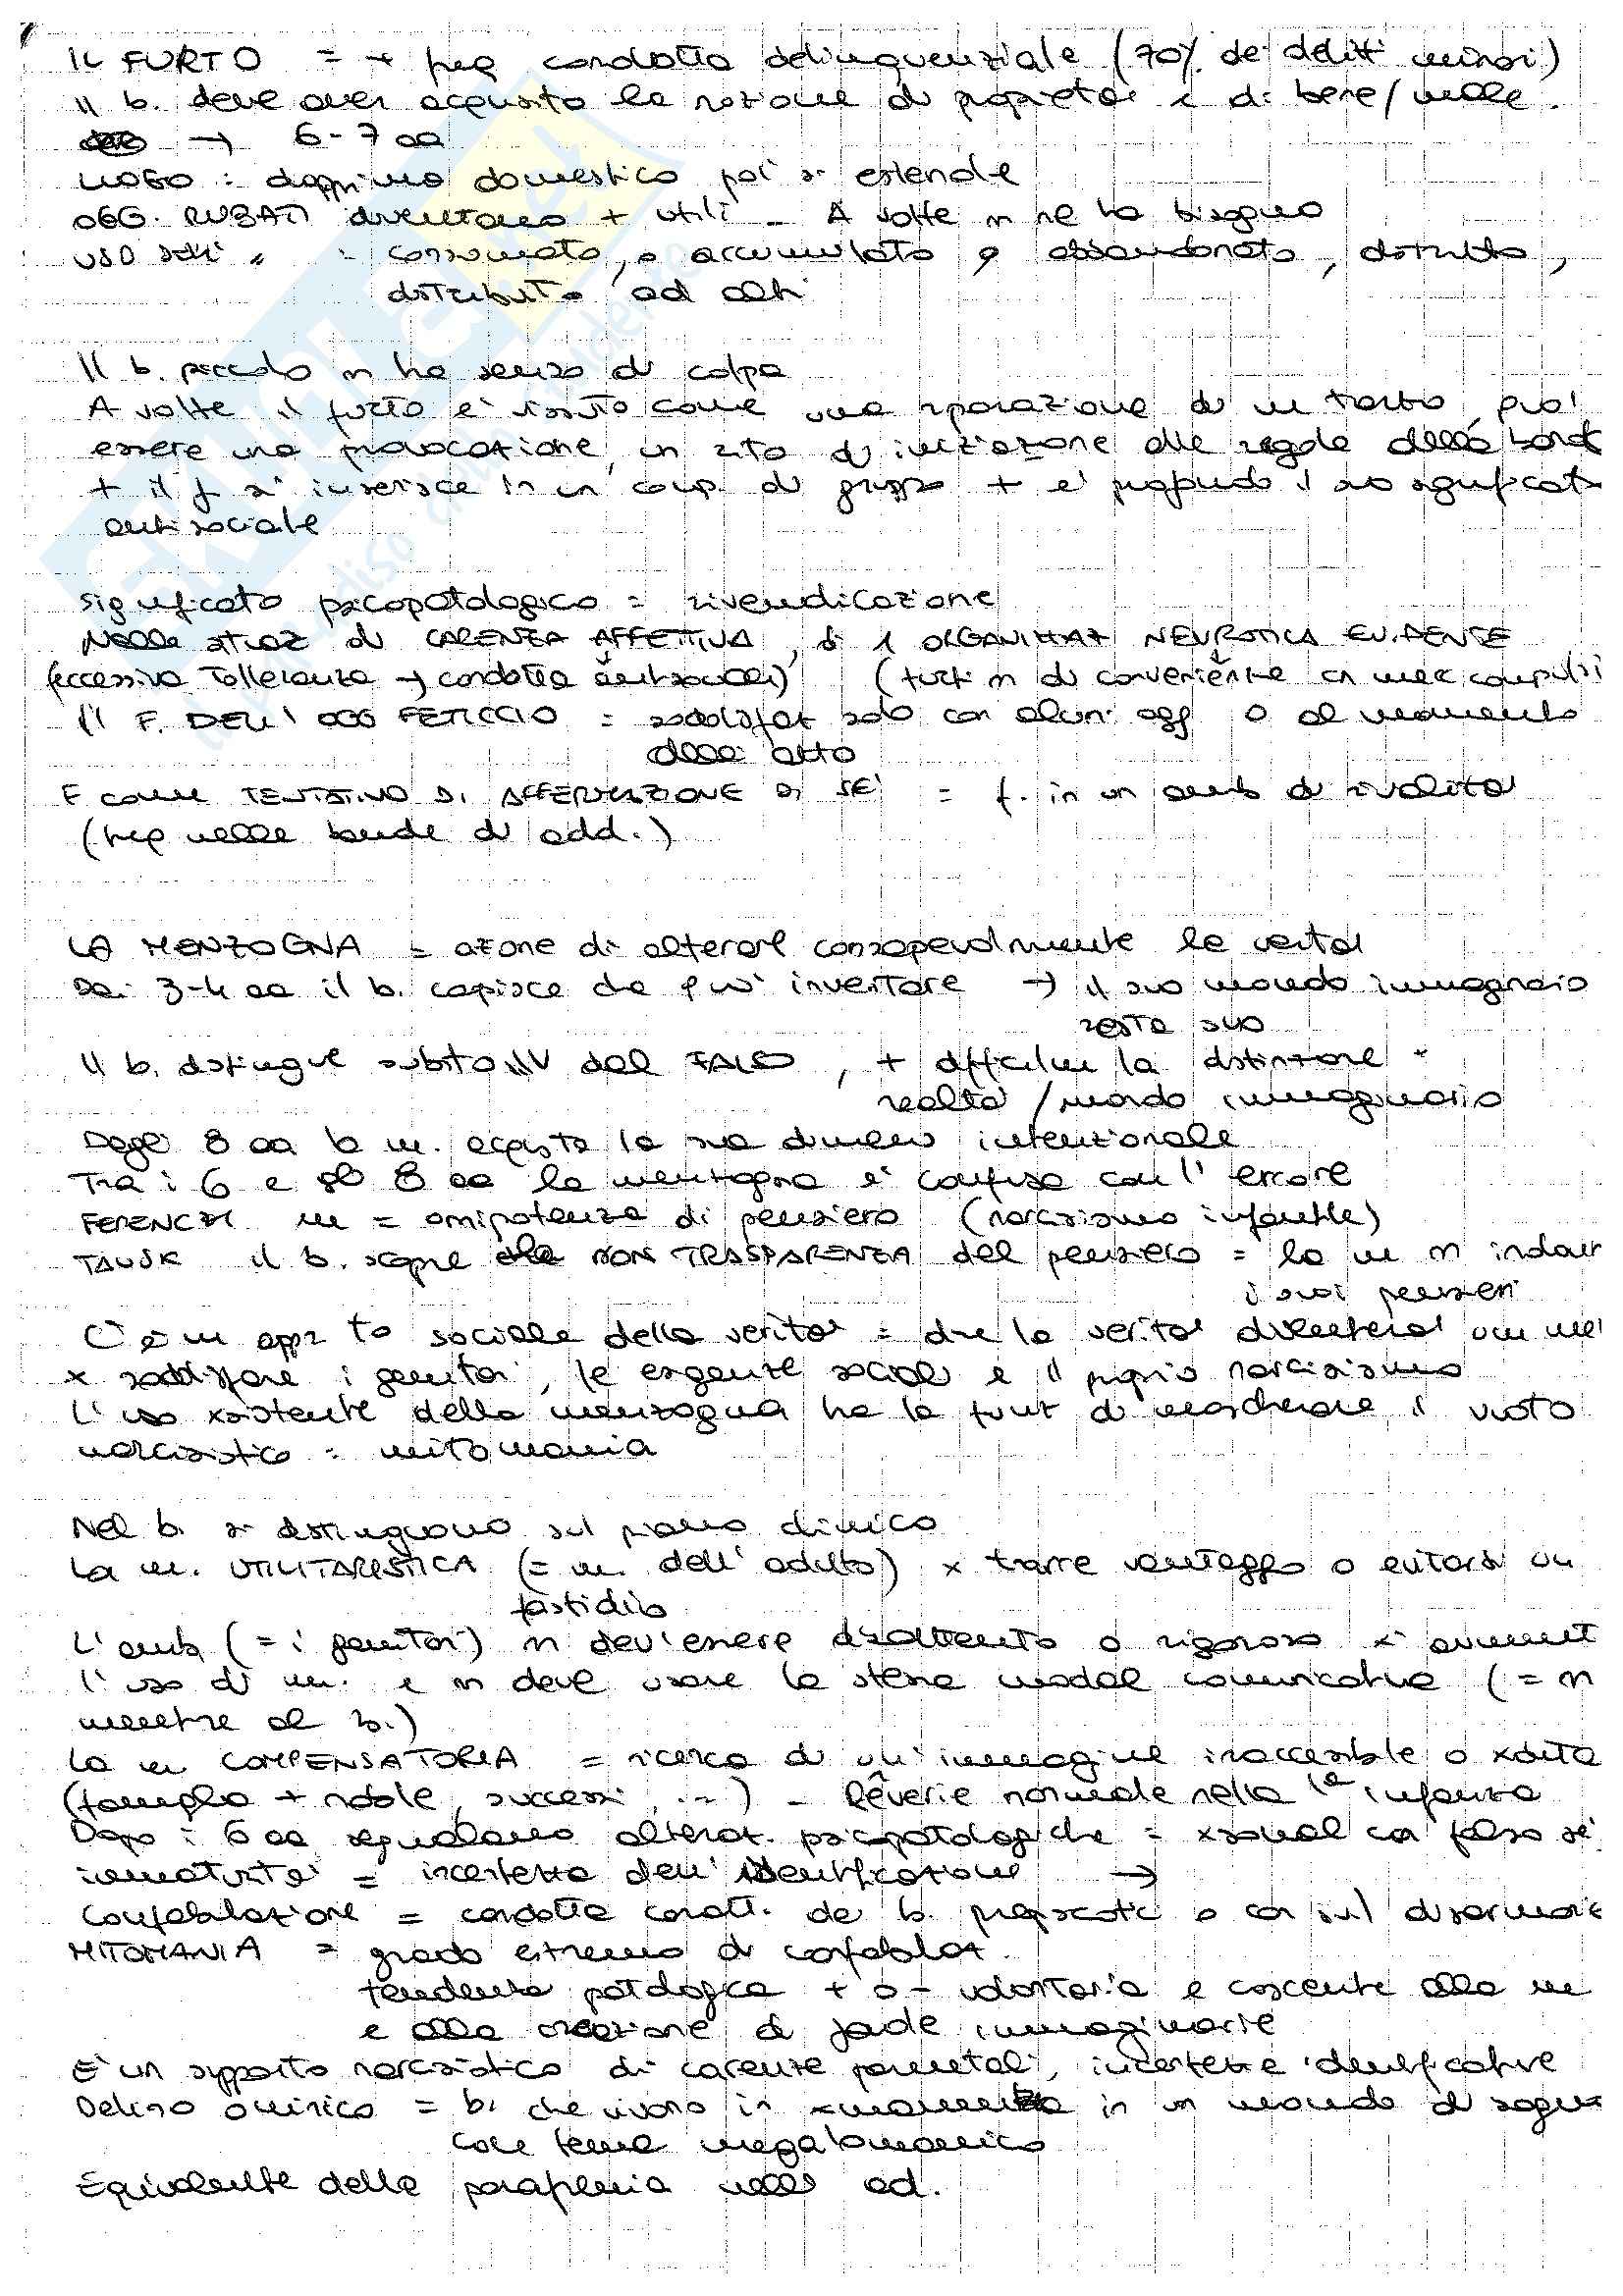 IL FURTO = + freq condotta delinquenziale (70% dei delitti minori)
Il b. deve aver acquisito la nozione di proprietà e di bene/male.
→ 6-7 aa
LUOGO : dapprima domestico poi si estende
OGG. RUBATI diventano + utili - A volte n ne ha bisogno
USO DELL' " : consumato, o accumulato o abbandonato, distrutto,
distribuito ad altri
Il b. piccolo n ha senso di colpa
A volte il furto è vissuto come una riparazione di un torto, può
essere una provocazione, un rito di iniziazione alle regole della banda
+ il f si inserisce in un comp. di gruppo + e' profondo il suo significato
antisociale
Significato psicopatologico = rivendicazione
Nelle situaz di CARENZA AFFETTIVA, di 1 ORGANIZZAZ NEVROTICA EVIDENTE
(eccessiva tolleranza → condotta antisociali) (furti n di convenienza con mecc compulsi
Il F. DELL' OGG FETICCIO = soddisfaz solo con alcuni ogg o al momento
dell' atto
F come TENTATIVO DI AFFERMAZIONE DI SE' = f. in un amb di rivalità
(freq nelle bande di add.)
LA MENZOGNA = azione di alterare consapevolmente la verità
Dai 3-4 aa il b. capisce che può inventare → il suo mondo immaginario
resta suo
Il b. distingue subito il V dal FALSO, + difficilm la distinzione
realtà / mondo immaginario
Dagli 8 aa la m. acquista la sua dimens intenzionale
Tra i 6 e gli 8 aa la menzogna e' confusa con l' errore
FERENCZI m = omnipotenza di pensiero (narcisismo infantile)
TAUSK il b. scopre la NON TRASPARENZA del pensiero = la m n indovi
i suoi pensieri
C'è un appr.to sociale della verità = dire la verità diventerà un me
x soddisfare i genitori, le esigenze sociali e il proprio narcisismo
L'uso xsistente della menzogna ha la funz di mascherare il vuoto
narcisistico = mitomania
Nel b. si distinguono sul piano clinico
La m. UTILITARISTICA (= m. dell' adulto) x trarre vantaggio o evitarsi un
fastidio
L'amb (= i genitori) n dev'essere disattento o rigoroso x' aument
l'uso di m. e n deve usare la stessa modal comunicativa (= n
mentire al b.)
La m COMPENSATORIA = ricerca di un'immagine inaccessibile o xduta
(famiglia + nobile, successi, ...) - Rêverie normale nella 1ª infanza
Dopo i 6 aa segnalano alteraz. psicopatologiche = xsonal con falso sé
immaturità = incertezza dell' identificazione →
Confabulazione = condotta caratt. dei b. prepsicotici o con svil disarmoni
MITOMANIA = grado estremo di confabulaz.
tendenza patologica + o - volontaria e cosciente alla m
e alla creazione di favole immaginarie
E' un supporto narcisistico di carenze parentali, incertezze identificative
Delirio onirico = b. che vivono in xmanenza in un mondo di sogni
con tema megalomanico
Equivalente della parafrenia nelle ad.